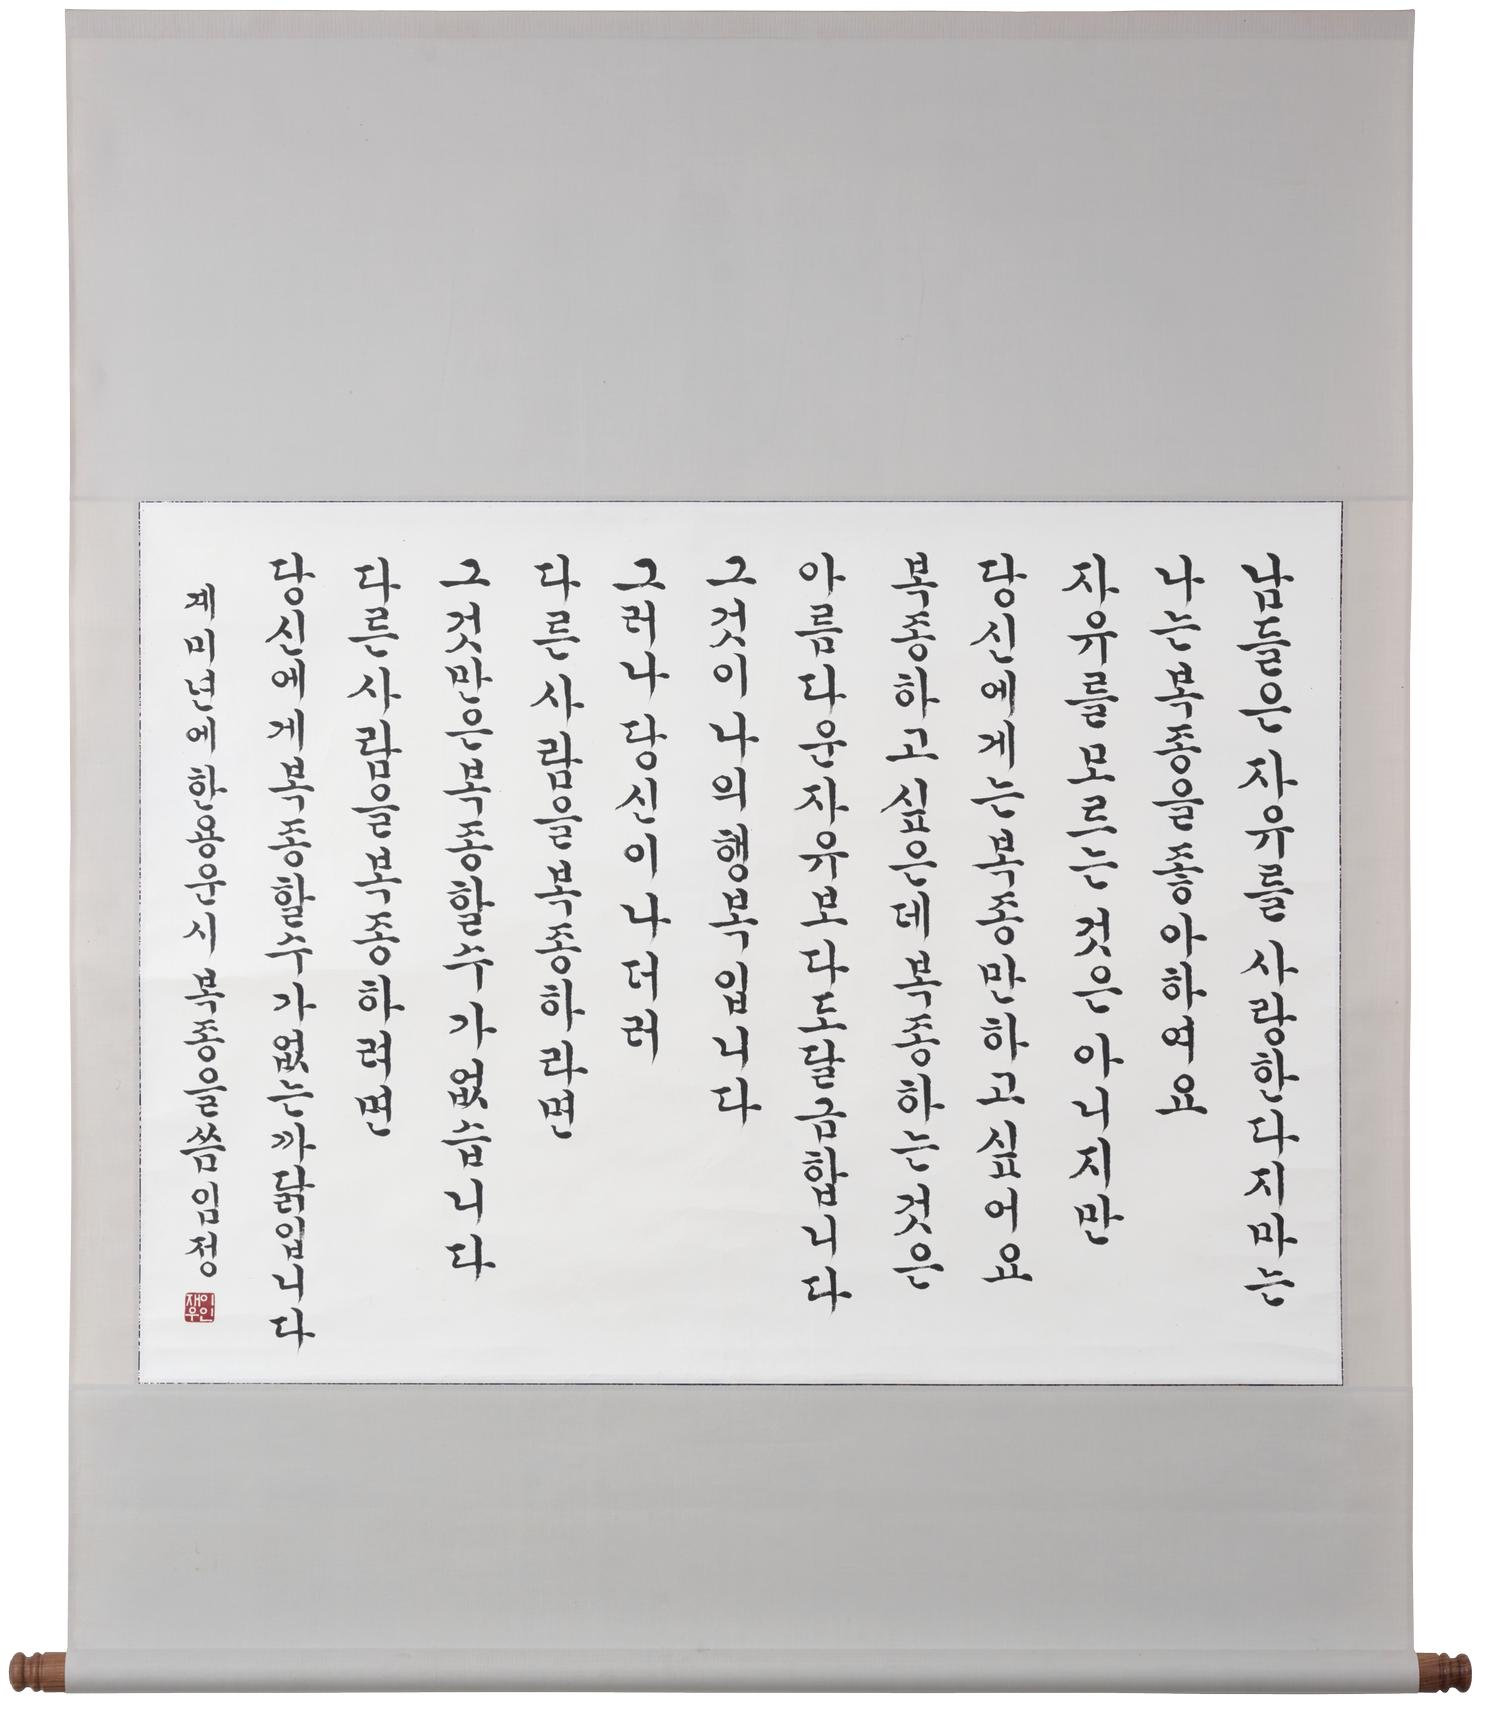 남들은 자유를 사랑한다지마는
나는 복종을 좋아하여요
자유를 모르는 것은 아니지만
당신에게는 복종만 하고 싶어요
복종하고 싶은데 복종하는 것은
아름다운 자유보다도 달금합니다
그것이 나의 행복입니다
그러나 당신이 나더러
다른 사람을 복종하라면
그것만은 복종할 수가 없습니다
다른 사람을 복종하려면
당신에게 복종할 수가 없는 까닭입니다
계미년에 한용운 시 복종을 씀 임정
이인
재우